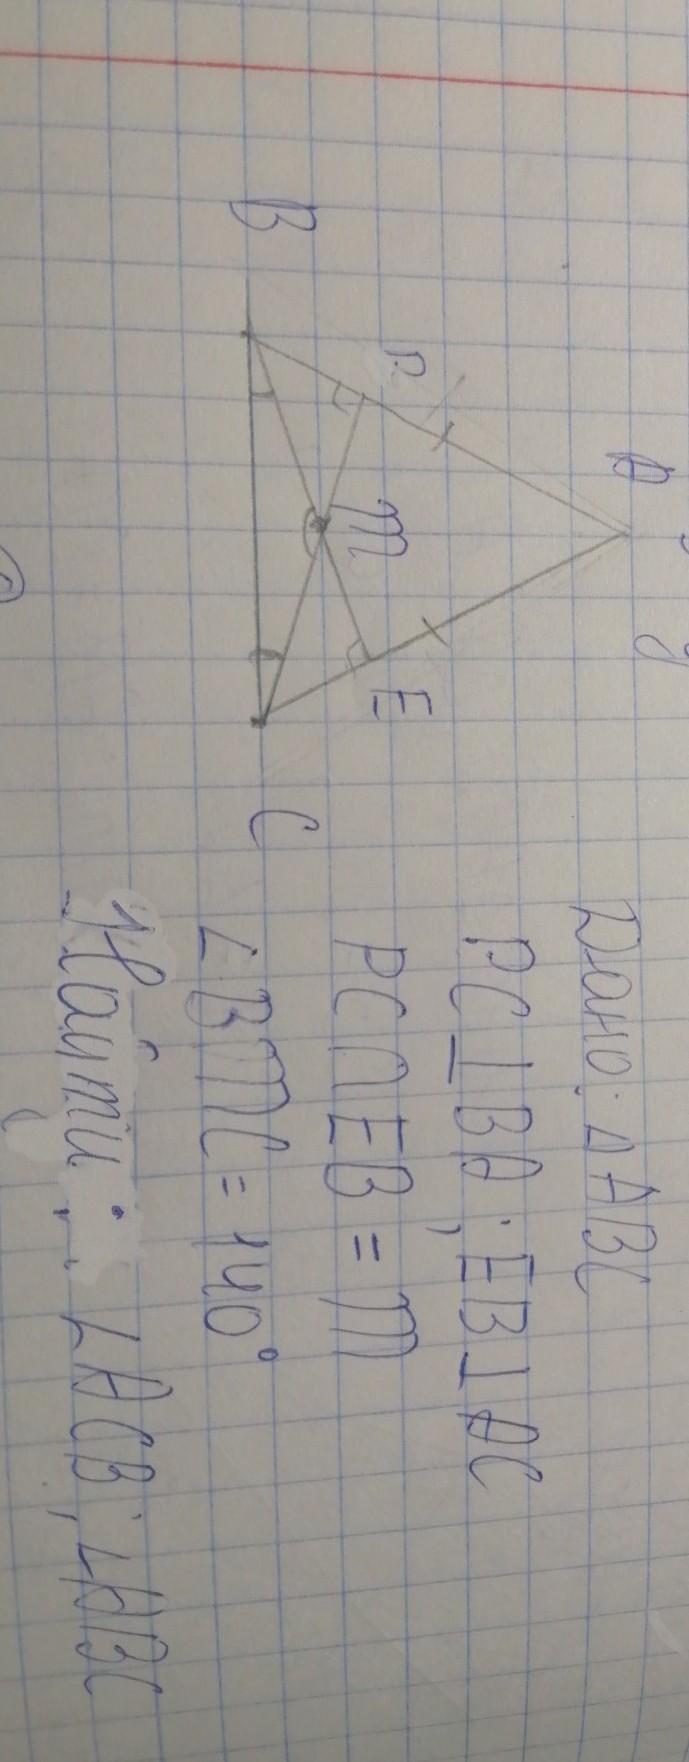 A
P
E
M
B
C
Дано: ΔABC
PC⊥BA; EB⊥AC
PC∩EB=M
∠BMC=140°
Найти: ∠ACB; ∠ABC